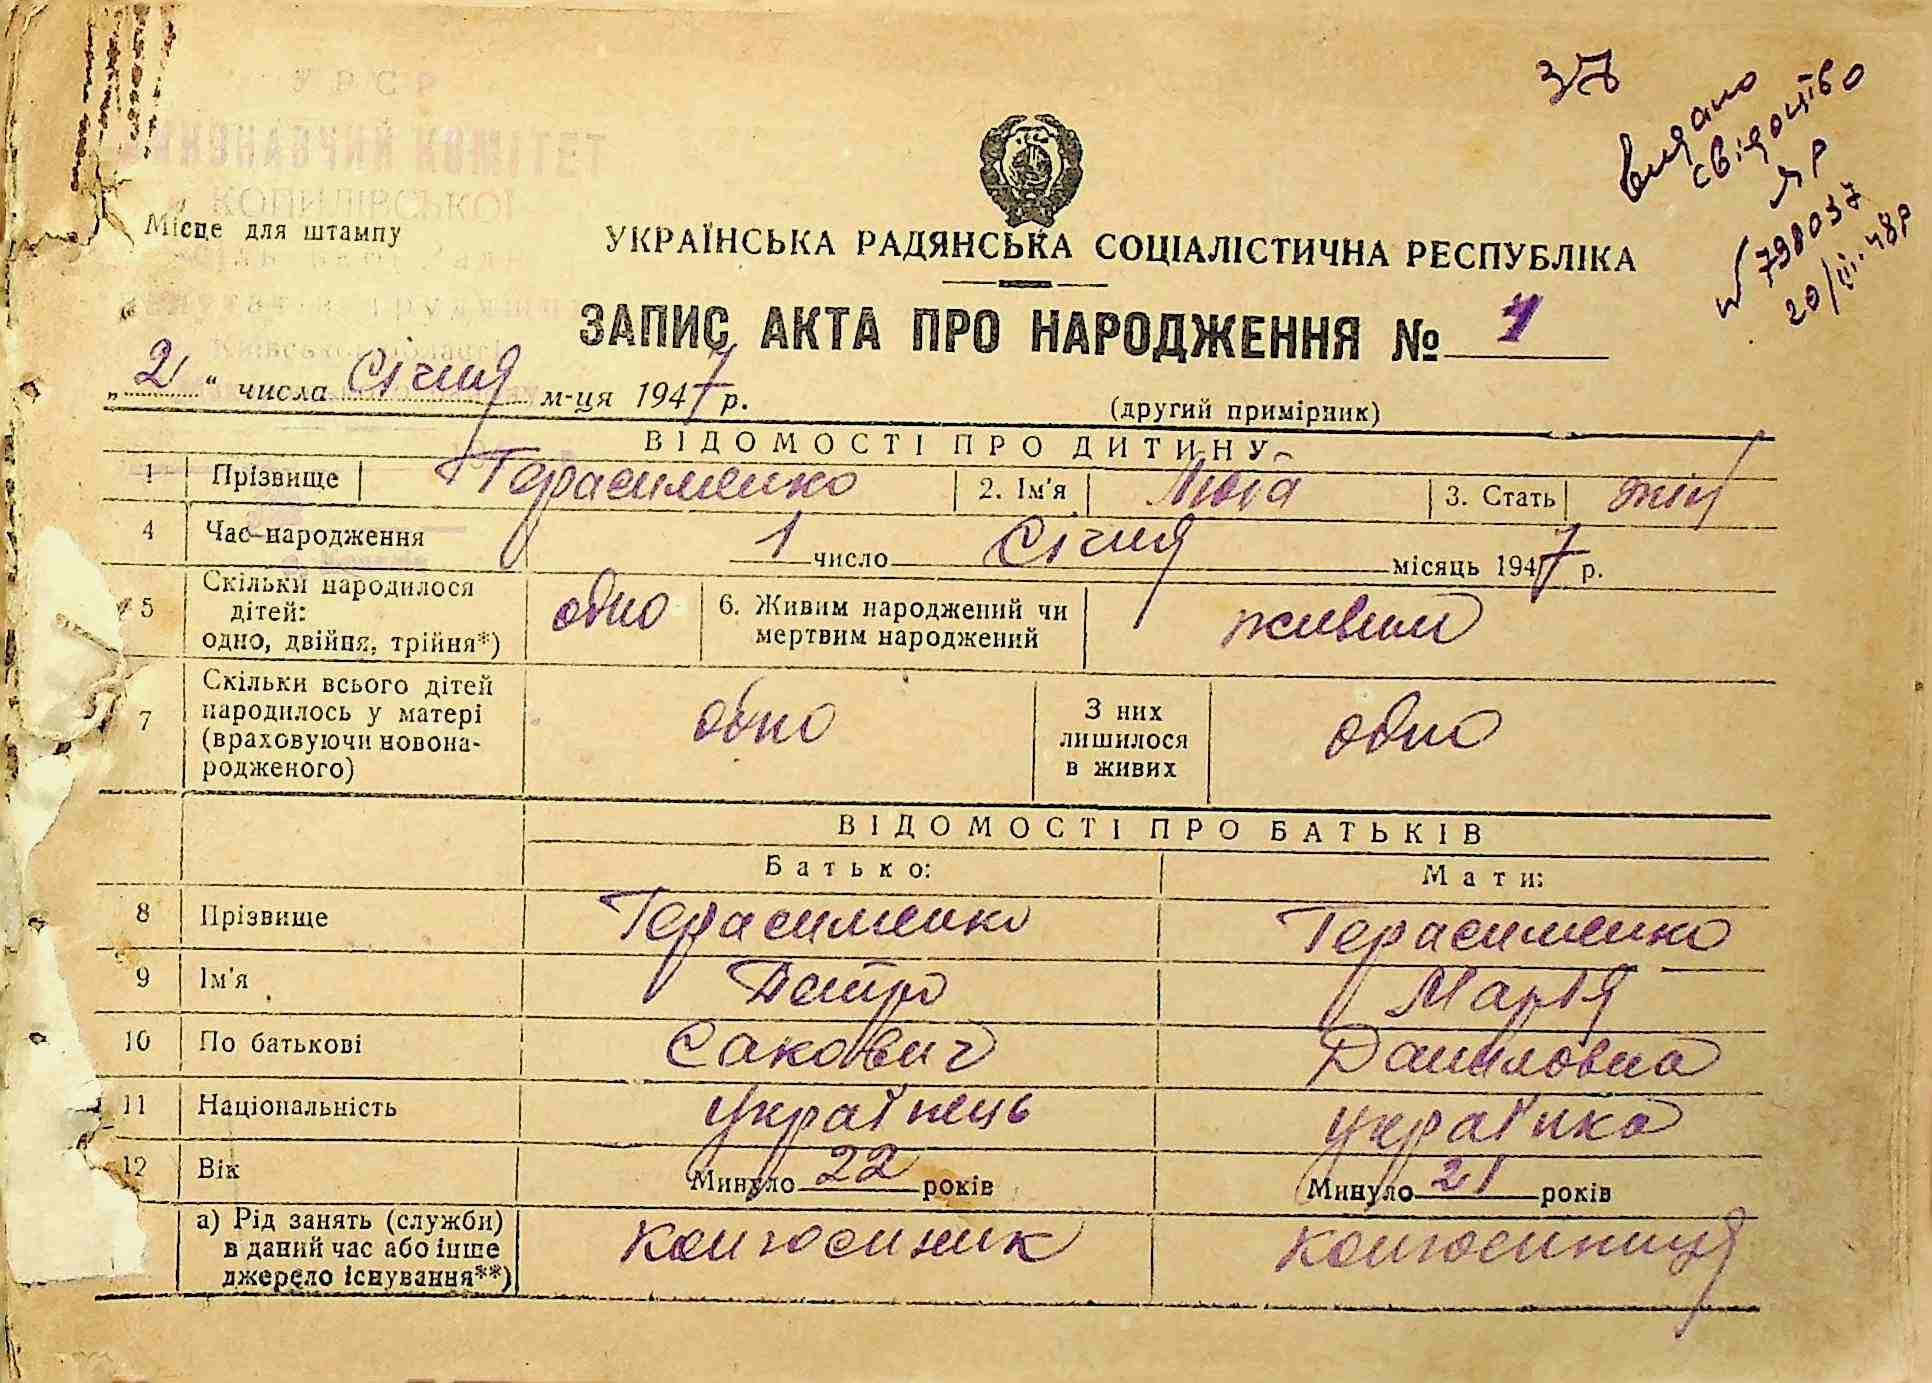 УРСР
ВИКОНАВЧИЙ КОМІТЕТ
КОПИЛІВСЬКОЇ
Місце для штампу
37
видано
свідоцтво
ЯР
№ 798037
20/III-48р
УКРАЇНСЬКА РАДЯНСЬКА СОЦІАЛІСТИЧНА РЕСПУБЛІКА
ЗАПИС АКТА ПРО НАРОДЖЕННЯ № 1
„2“ числа Січня м-ця 1947 р.
(другий примірник)
ВІДОМОСТІ ПРО ДИТИНУ
1 Прізвище Герасименко 2. Ім'я 3. Стать жін
4 Час народження 1 число Січня місяць 1947 р.
5 Скільки народилося
дітей:
одно, двійня, трійня*) одно 6. Живим народжений чи
мертвим народжений живим
7 Скільки всього дітей
народилось у матері
(враховуючи новона-
родженого) одно З них
лишилося
в живих одно
ВІДОМОСТІ ПРО БАТЬКІВ
Батько: Мати:
8 Прізвище Герасименко Герасименко
9 Ім'я Петро Марія
10 По батькові Сакович Даниловна
11 Національність українець українка
12 Вік Минуло 22 років Минуло 21 років
а) Рід занять (служби)
в даний час або інше
джерело існування**) колгоспник колгоспниця